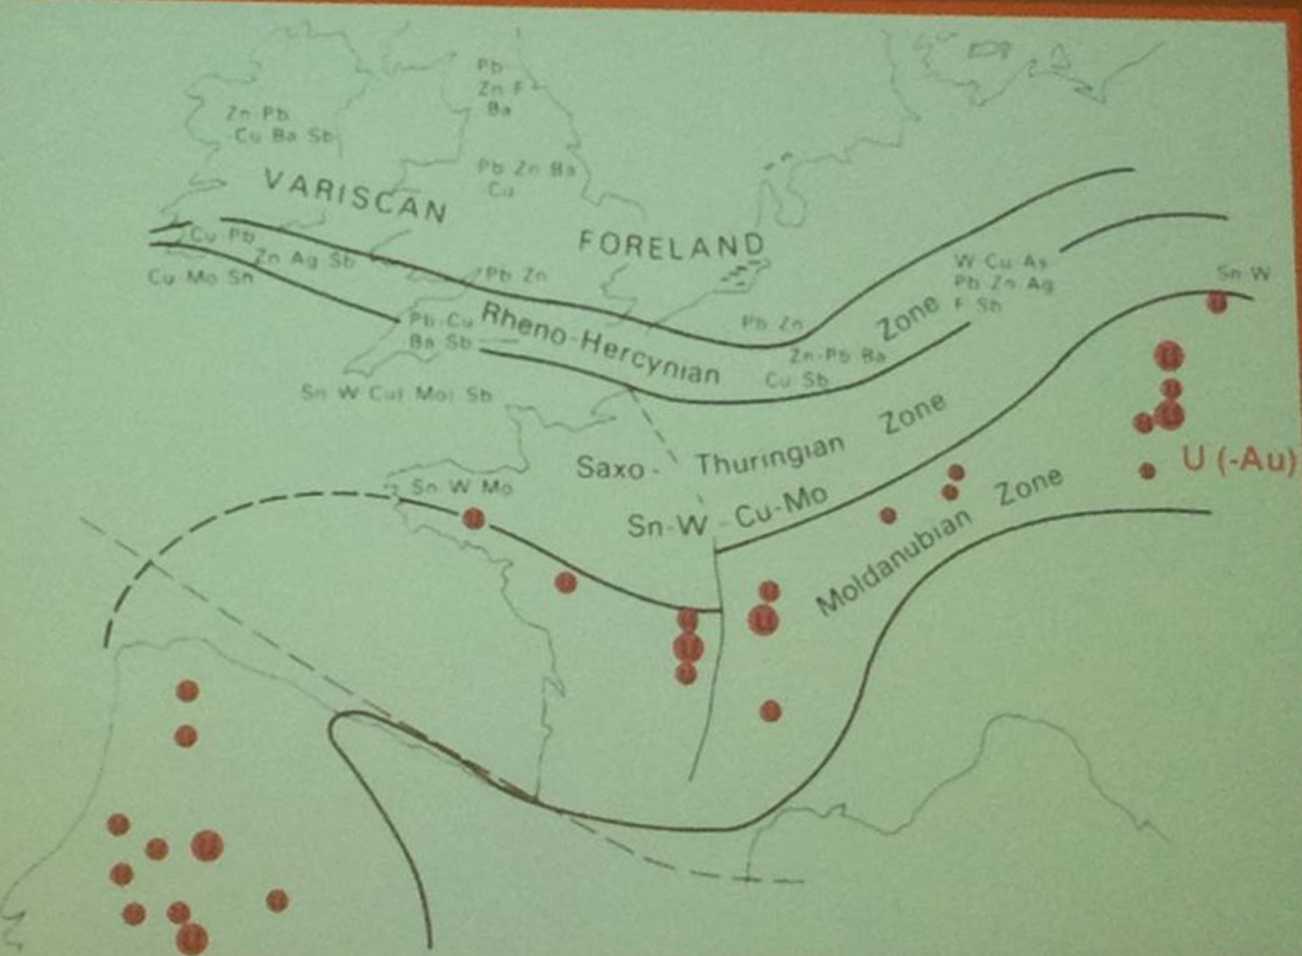 Pb
Zn F
Ba
Zn Pb
Cu Ba Sb
Pb Zn Ba
Cu
VARISCAN
FORELAND
Cu Pb
Zn Ag Sb
Cu Mo Sn
Pb Zn
W Cu As
Pb Zn Ag
F Sb
Sn W
Pb Cu
Ba Sb
Rheno-Hercynian Zone
Pb Zn
Zn-Pb Ba
Cu Sb
Sn W Mo Sb
Saxo-Thuringian Zone
Sn W Mo
Sn-W-Cu-Mo
Moldanubian Zone
U (-Au)
U
U
U
U
U
U